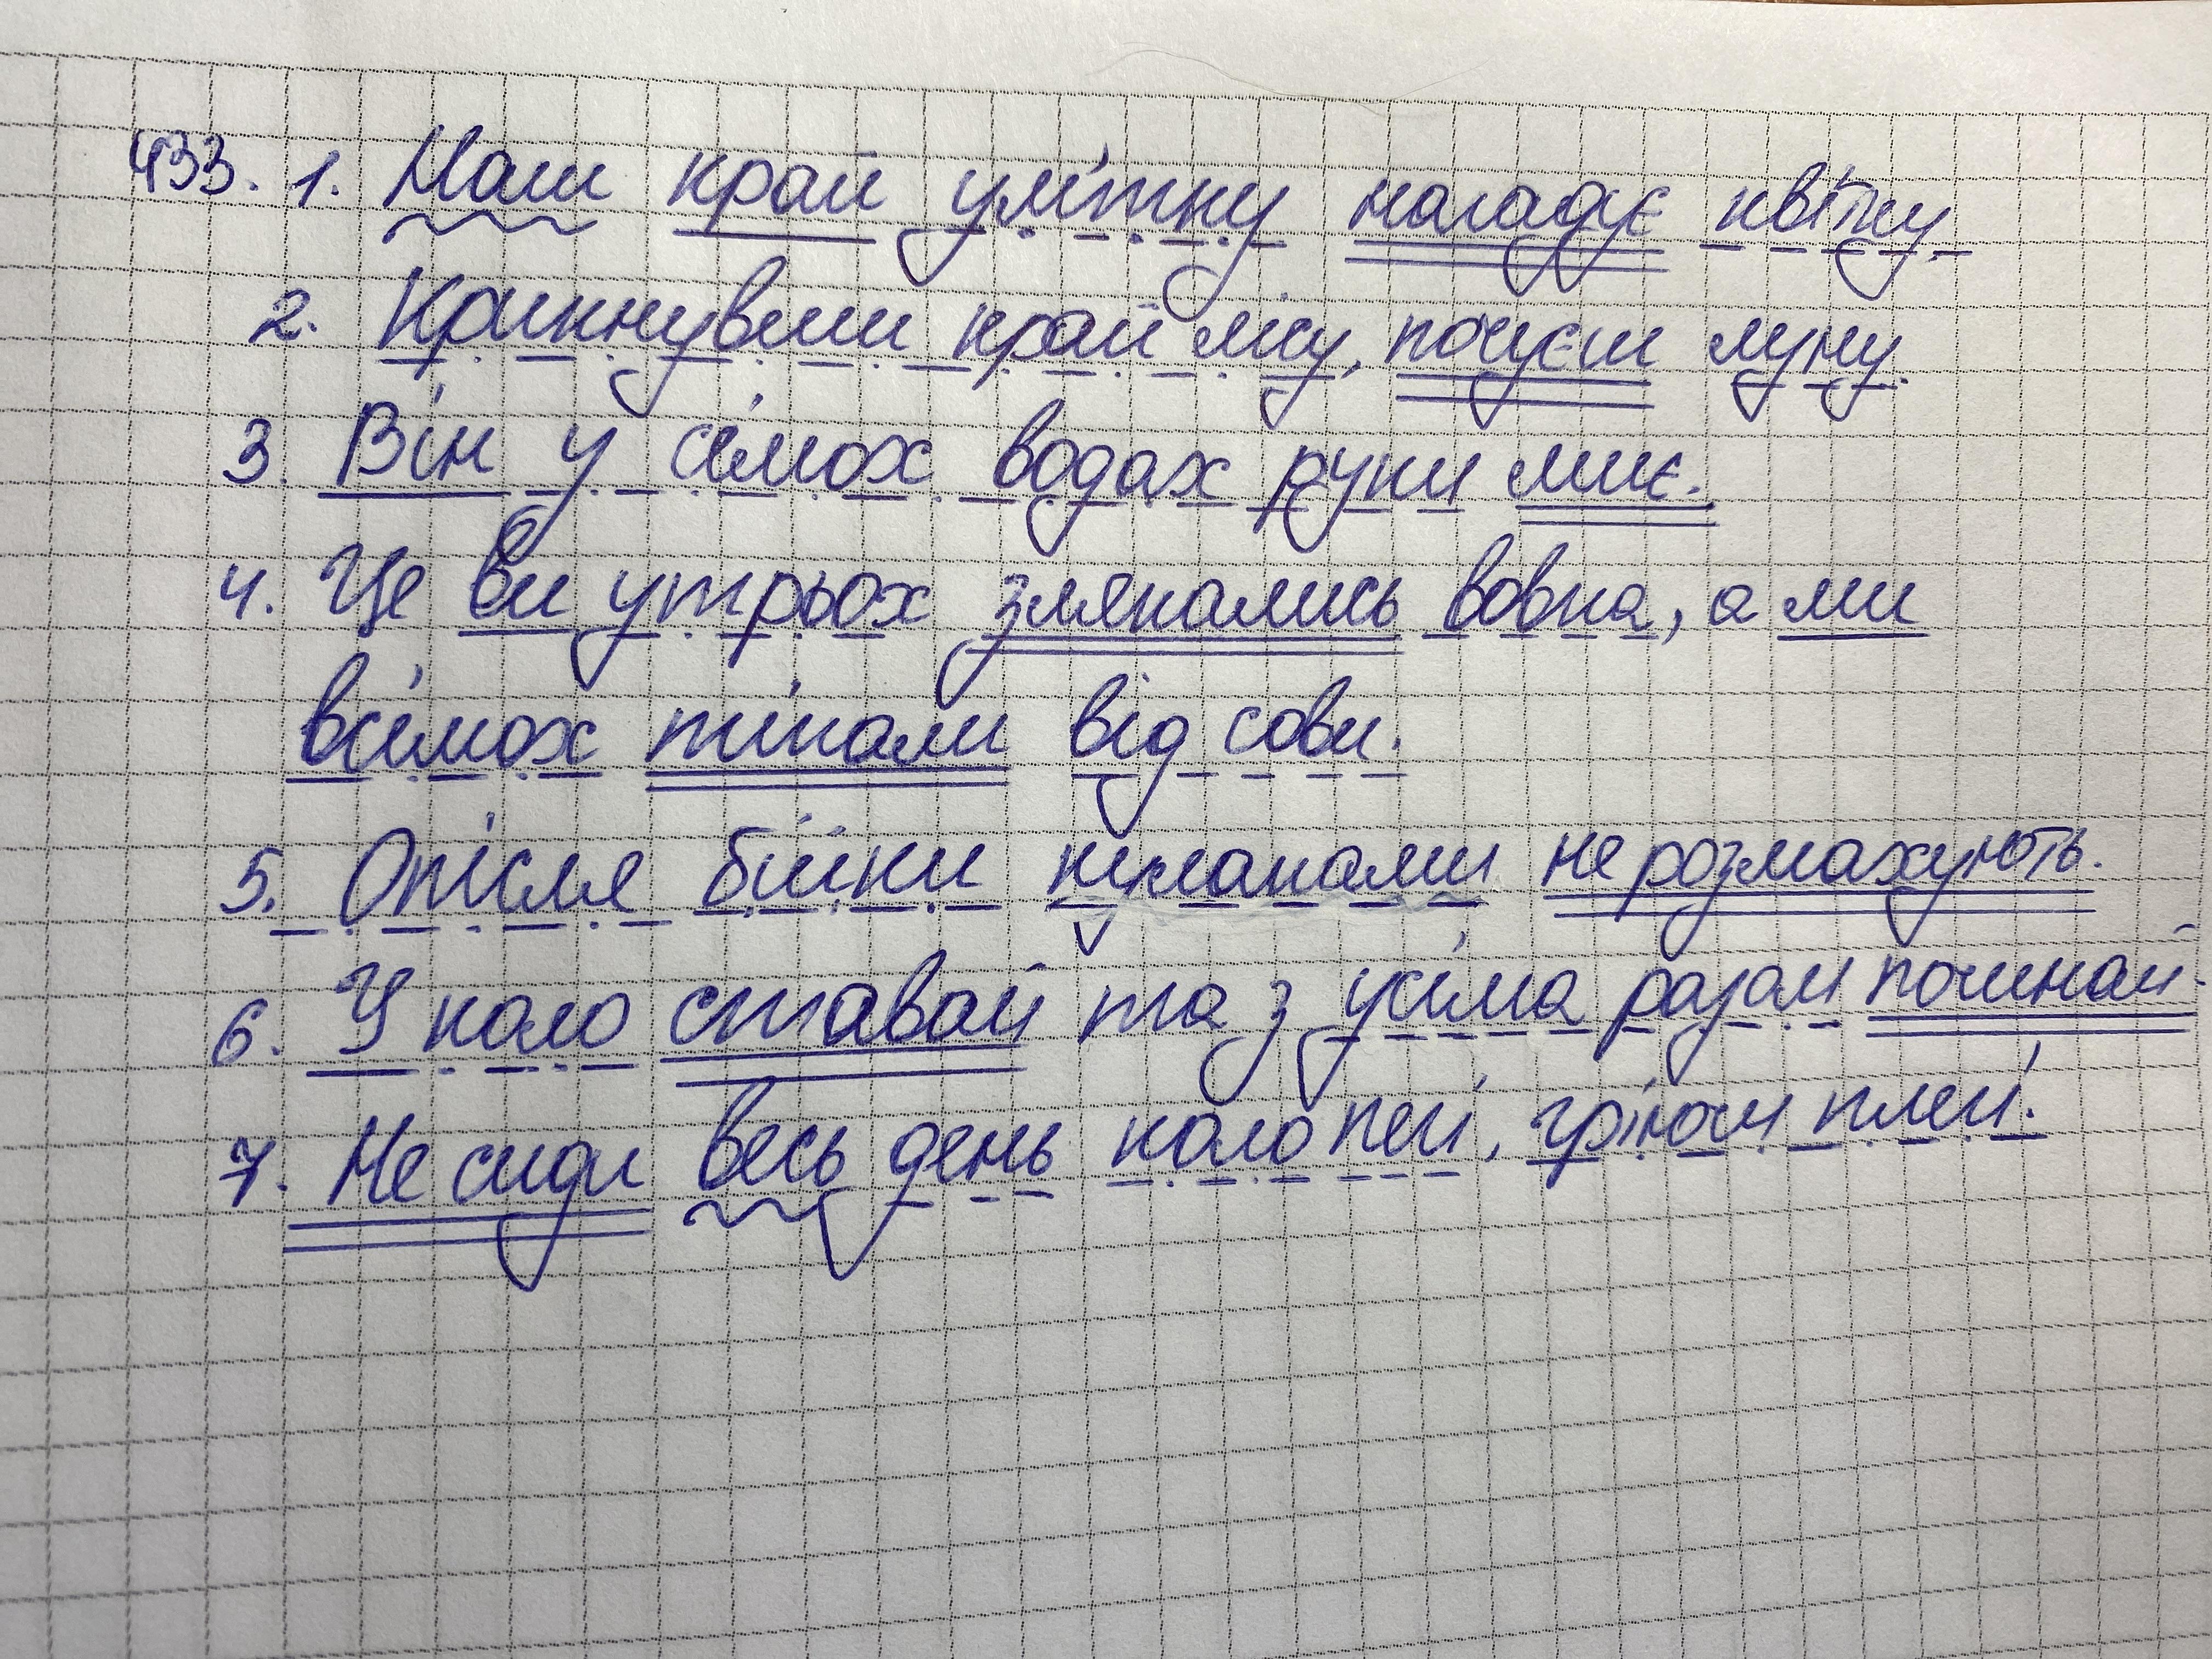 433. 1. Наш край улітку нагадує квітку.
2. Крикнувши край лісу, почуєш луну.
3. Він у сімох водах руки миє.
4. Це ви утрьох злякались вовка, а ми
всімох тікали від сови.
5. Опісля бійки кулаками не розмахують.
6. У коло ставай та з усіма разом починай.
7. Не сиди весь день коло печі, грінок плечі.